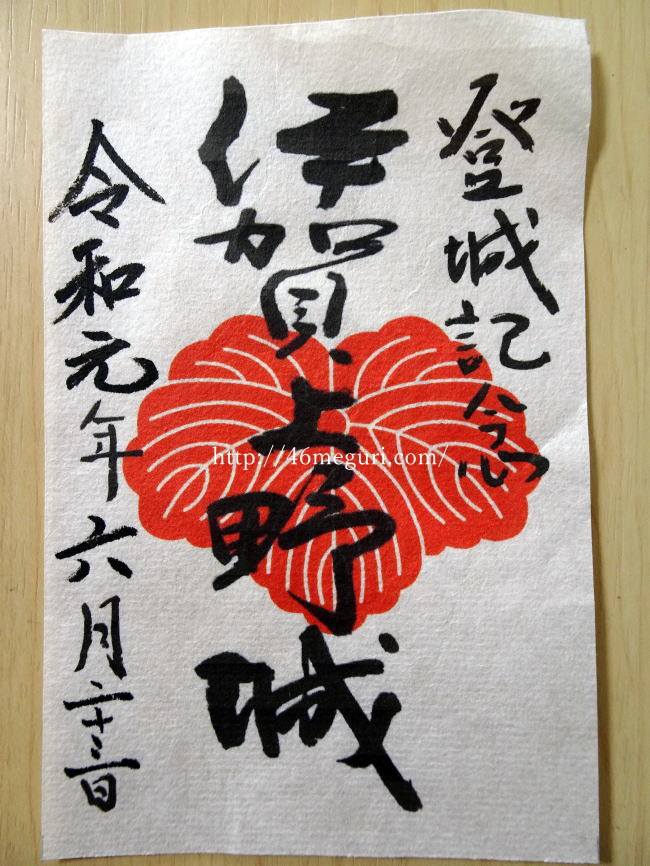 登城記念
伊賀上野城
令和元年六月二十三日
http://46meguri.com/